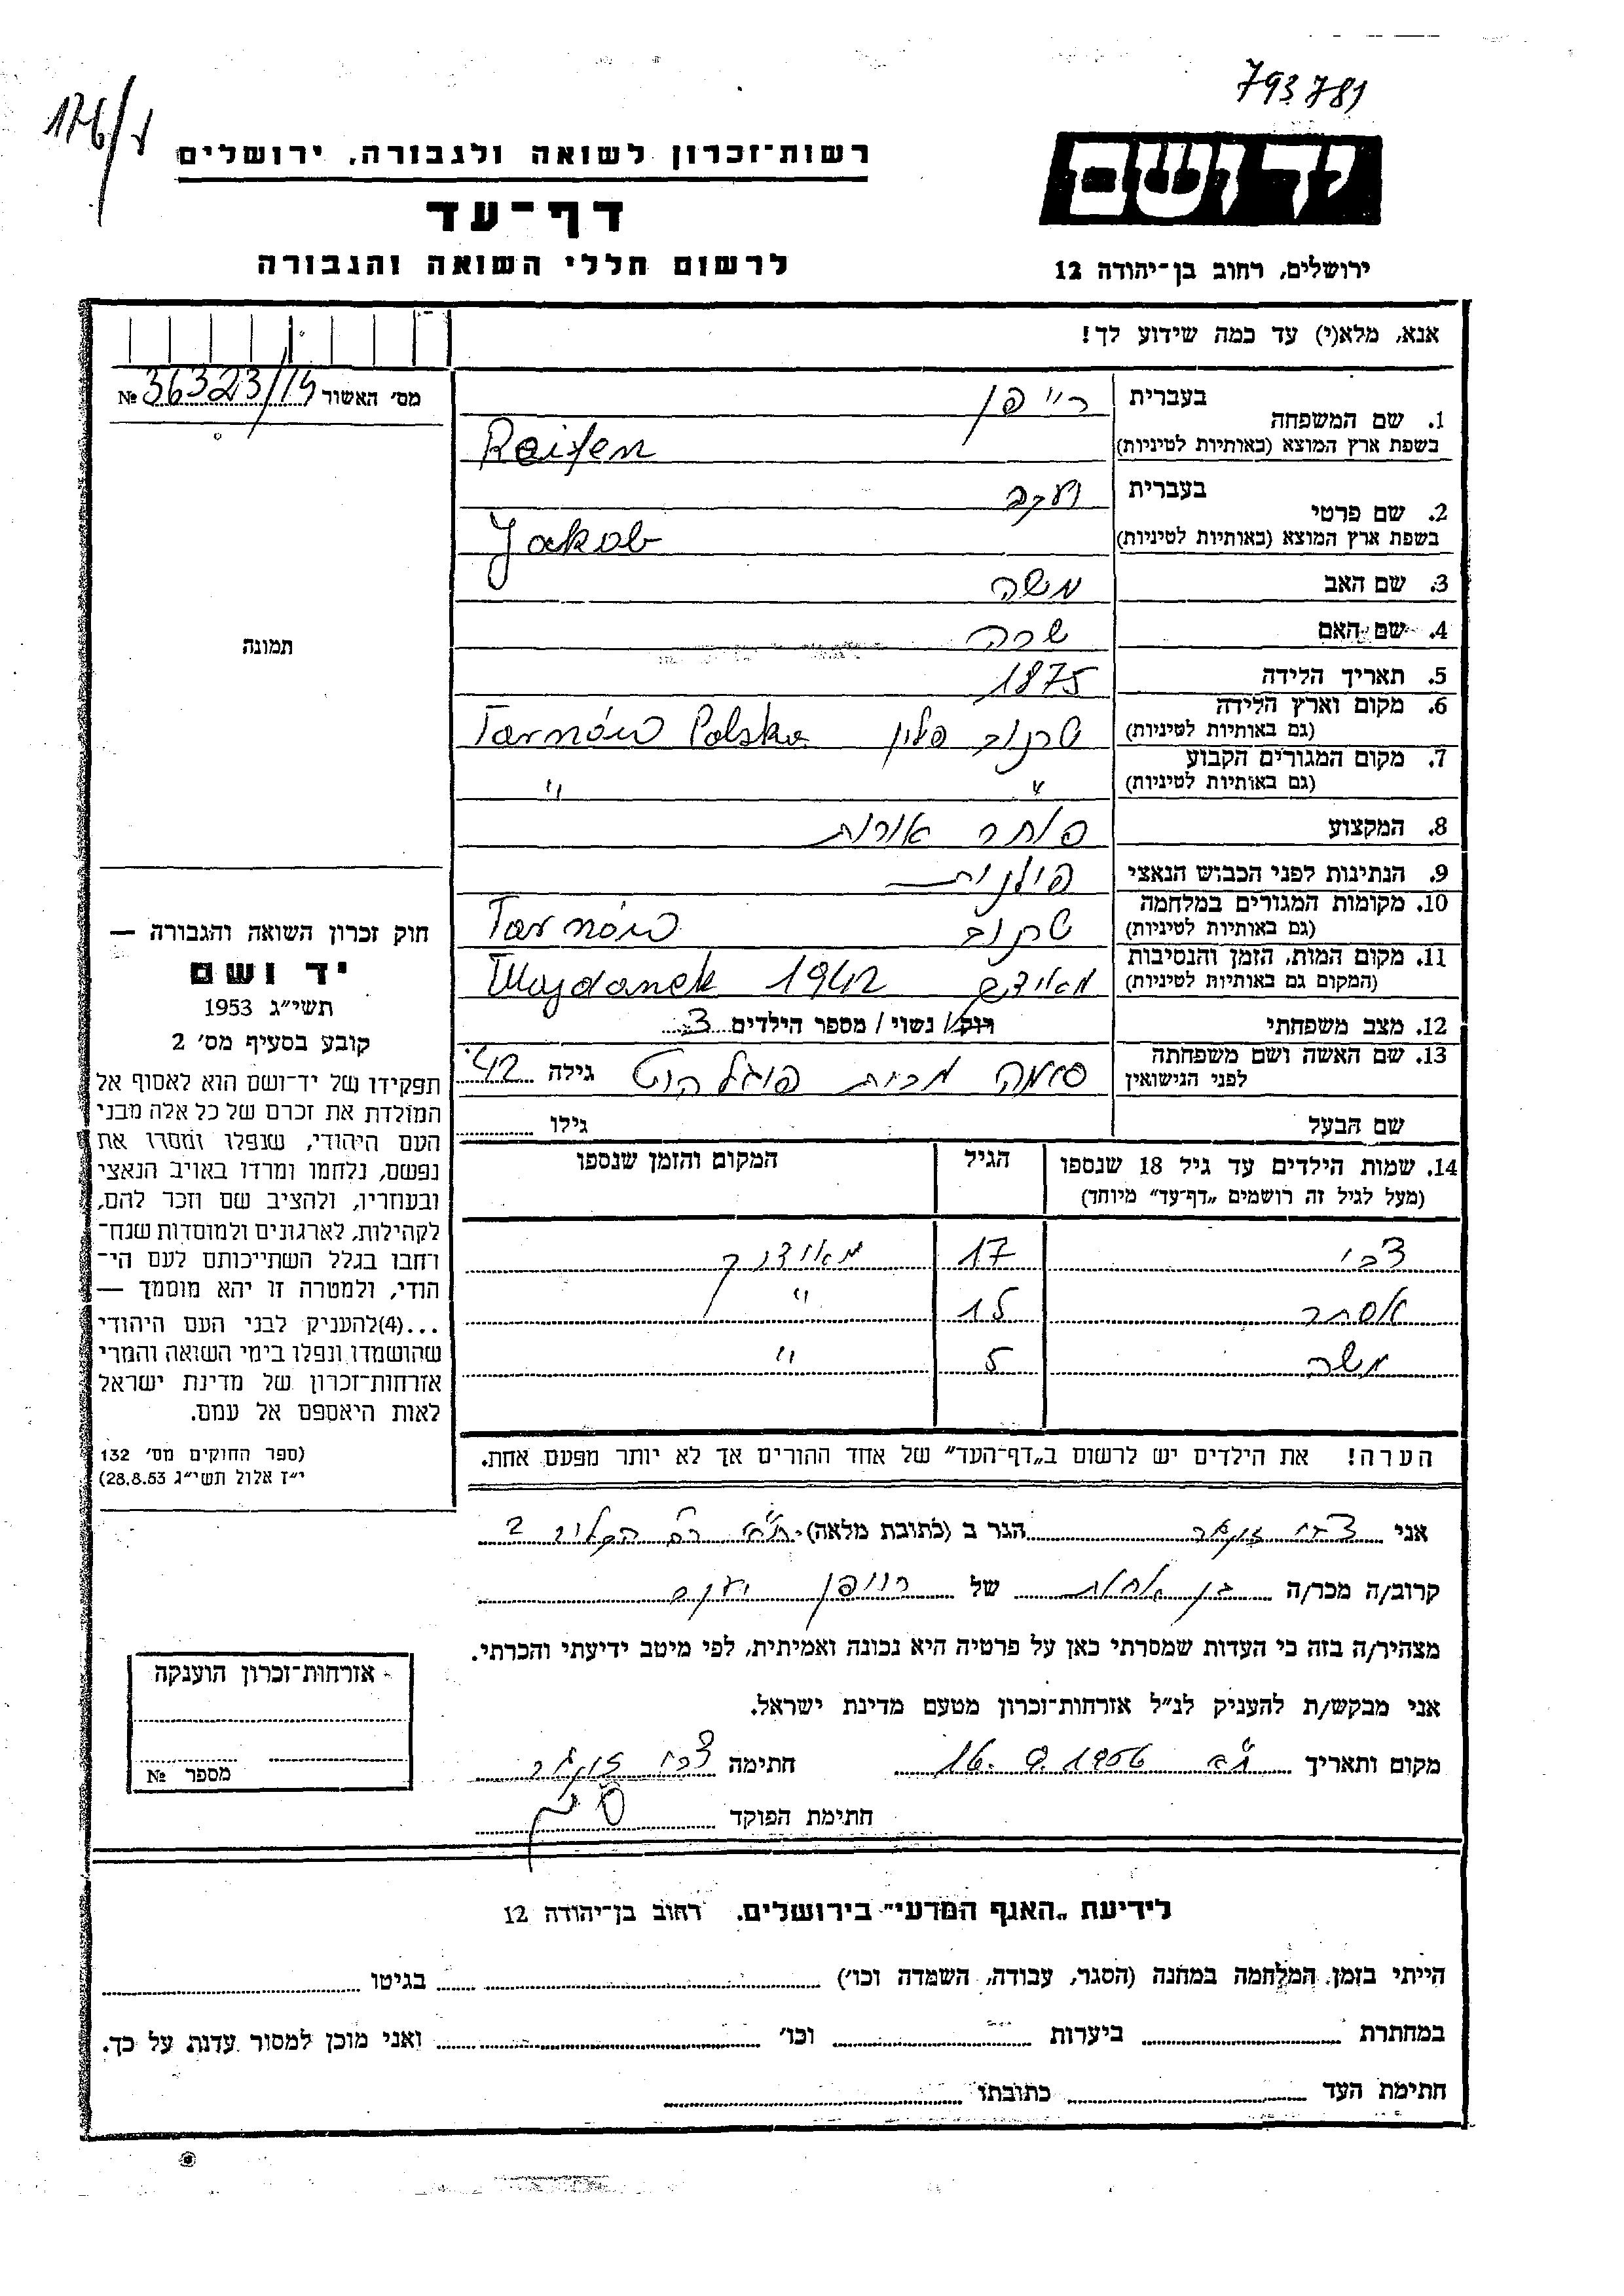 793781
176/ר
יד ושם
רשות־זכרון לשואה ולגבורה, ירושלים
דף־עד
לרשום חללי השואה והגבורה
ירושלים, רחוב בן־יהודה 12
אנא, מלא(י) עד כמה שידוע לך!
מס׳ האשור 36323/15 №
1. שם המשפחה בעברית רייפן
בשפת ארץ המוצא (באותיות לטיניות) Reifen
2. שם פרטי בעברית יעקב
בשפת ארץ המוצא (באותיות לטיניות) Jakob
3. שם האב משה
4. שם האם שרה
5. תאריך הלידה 1875
6. מקום וארץ הלידה (גם באותיות לטיניות) טרנוב פולין Tarnów Polska
7. מקום המגורים הקבוע (גם באותיות לטיניות) " "
8. המקצוע סוחר אורות
9. הנתינות לפני הכבוש הנאצי פולנית
10. מקומות המגורים במלחמה (גם באותיות לטיניות) טרנוב Tarnów
11. מקום המות, הזמן והנסיבות (המקום גם באותיות לטיניות) מאידנק Majdanek 1942
12. מצב משפחתי רוק/ נשוי / מספר הילדים 3
13. שם האשה ושם משפחתה לפני הנישואין סימה מבית פוגלהוט גילה 42
שם הבעל גילו
14. שמות הילדים עד גיל 18 שנספו הגיל המקום והזמן שנספו
(מעל לגיל זה רושמים „דף־עד״ מיוחד)
צבי 17 מאידנק
אסתר 15 "
משה 5 "
הערה! את הילדים יש לרשום ב„דף־העד״ של אחד ההורים אך לא יותר מפעם אחת.
תמונה
חוק זכרון השואה והגבורה —
יד ושם
תשי״ג 1953
קובע בסעיף מס׳ 2
תפקידו של יד־ושם הוא לאסוף אל
המולדת את זכרם של כל אלה מבני
העם היהודי, שנפלו ומסרו את
נפשם, נלחמו ומרדו באויב הנאצי
ובעוזריו, ולהציב שם וזכר להם,
לקהילות, לארגונים ולמוסדות שנח־
רחבו בגלל השתייכותם לעם הי־
הודי, ולמטרה זו יהא מוסמך —
...(4)להעניק לבני העם היהודי
שהושמדו ונפלו בימי השואה והמרי
אזרחות־זכרון של מדינת ישראל
לאות היאספם אל עמם.
(ספר החוקים מס׳ 132
י״ז אלול תשי״ג 28.8.53)
אני צבי הגר ב (כתובת מלאה) ת״א רח 2
קרוב/ה מכר/ה בן אחות של רייפן יעקב
מצהיר/ה בזה כי העדות שמסרתי כאן על פרטיה היא נכונה ואמיתית, לפי מיטב ידיעתי והכרתי.
אני מבקש/ת להעניק לנ״ל אזרחות־זכרון מטעם מדינת ישראל.
מקום ותאריך ת״א 16.9.1956 חתימה צבי
חתימת הפוקד
אזרחות־זכרון הוענקה
מספר №
לידיעת „האגף המדעי״ בירושלים. רחוב בן־יהודה 12
הייתי בזמן המלחמה במחנה (הסגר, עבודה, השמדה וכו׳) בגיטו
במחתרת ביערות וכו׳ ואני מוכן למסור עדות על כך.
חתימת העד כתובתו